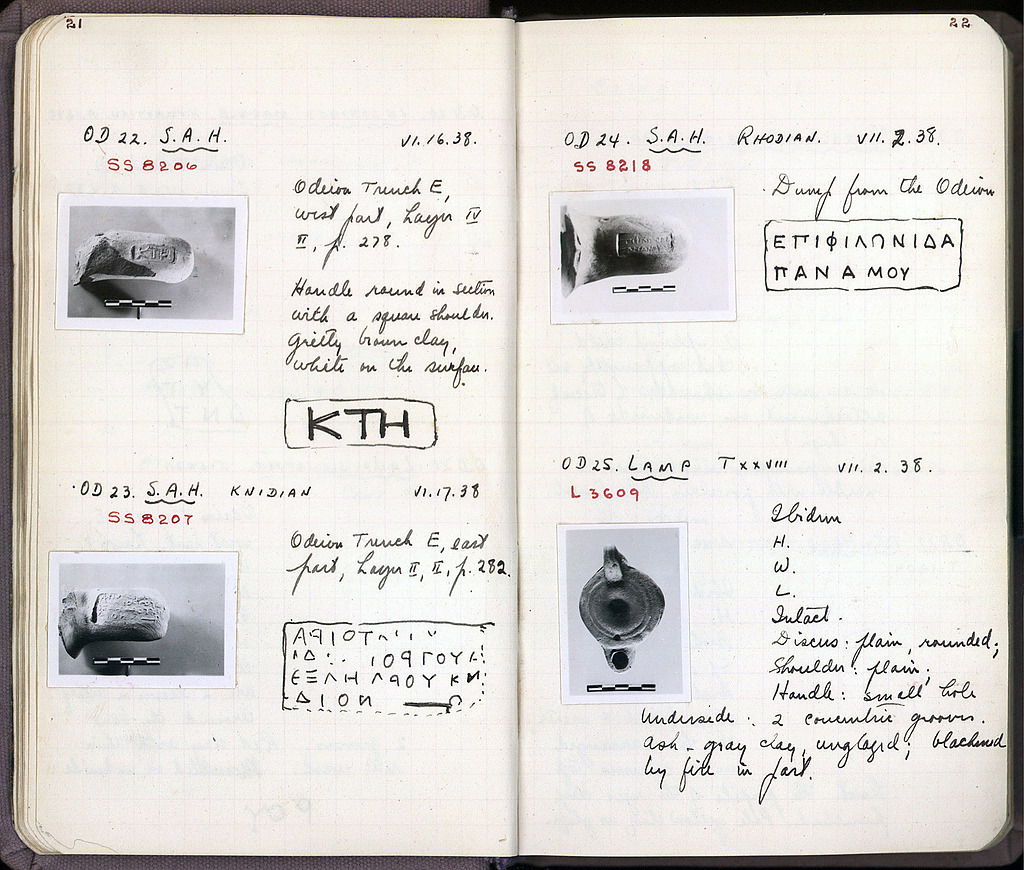 21
OD 22. S.A.H. VI.16.38.
SS 8206
Odeion Trench E,
west part, Layer IV
II, p. 278.
Handle round in section
with a square shoulder.
Gritty brown clay,
white on the surface.
ΚΤΗ
OD 23. S.A.H. KNIDIAN VI.17.38
SS 8207
Odeion Trench E, east
part, Layer II, II, p. 282.
ΑΡΙΟΤ
ΙΔ ΙΟΡΓΟΥ
ΕΞΛΗΛΡΟΥ ΚΝ
ΔΙΟΝ
22
OD 24. S.A.H. RHODIAN. VII.2.38.
SS 8218
Dump from the Odeion
ΕΠΙΦΙΛΩΝΙΔΑ
ΠΑΝΑΜΟΥ
OD 25. LAMP T XXVIII VII.2.38.
L 3609
Ibidem
H.
W.
L.
Intact.
Discus: plain, rounded;
Shoulder: plain;
Handle: small hole
Underside: 2 concentric grooves.
Ash-gray clay, unglazed; blackened
by fire in part.